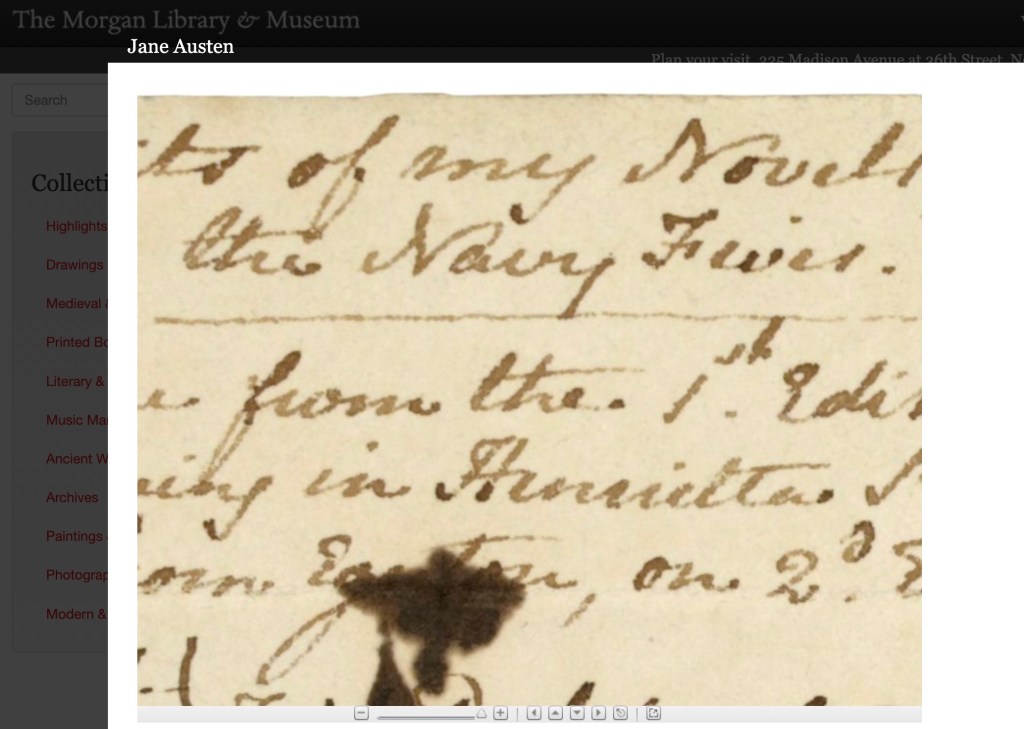 The Morgan Library & Museum
Jane Austen
Plan your visit. 225 Madison Avenue at 36th Street, N
Search
Collecti
Highlights
Drawings
Medieval &
Printed Bo
Literary &
Music Ma
Ancient W
Archives
Paintings
Photograp
Modern &
ts of my Novels
the Navy Fives.
e from the 1st. Edit
ing in Henrietta S
om on 2d. E